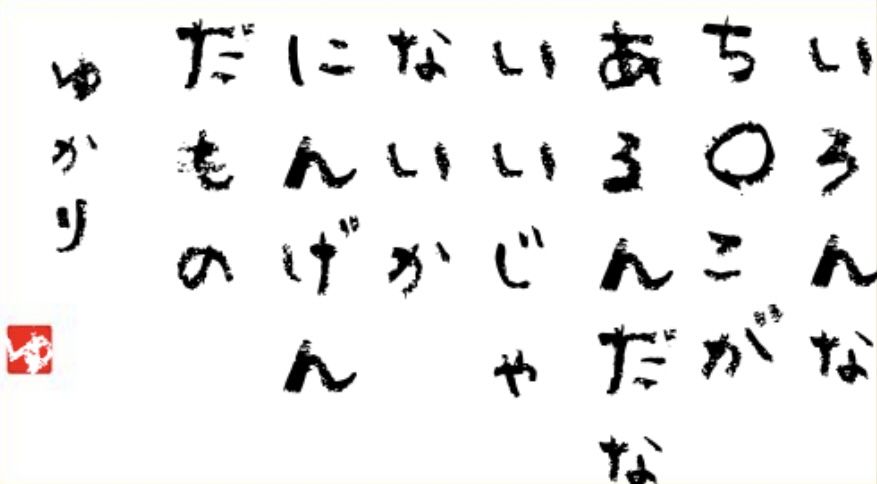 いろんな
ち〇こが
あるんだな
いいじゃ
ないか
にんげん
だもの
ゆかり
ゆ